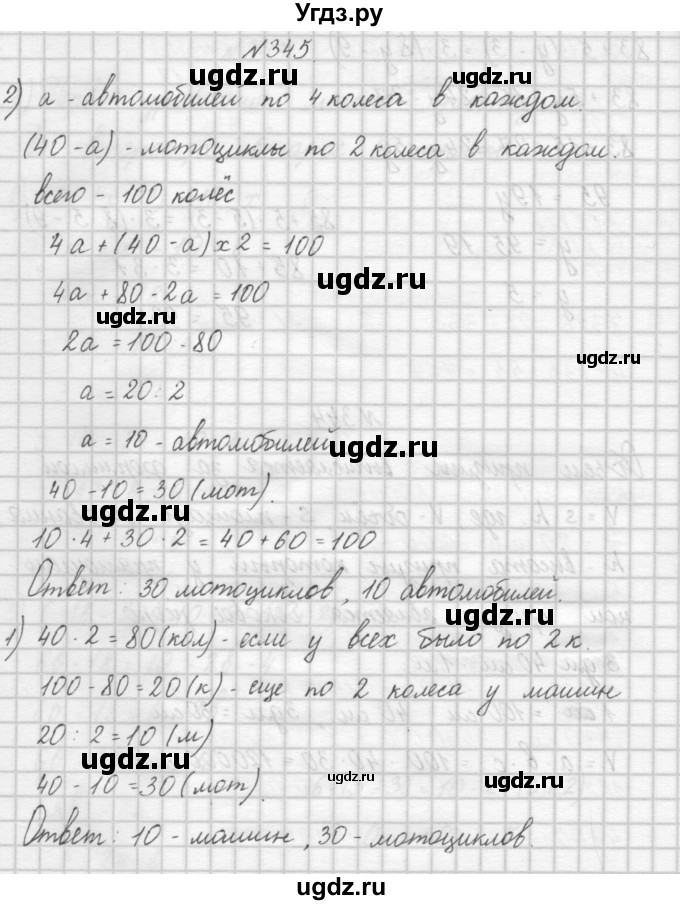 Угдз.ру
№345
2) а - автомобилей по 4 колеса в каждом.
(40 - а) - мотоциклы по 2 колеса в каждом.
всего - 100 колёс
4а + (40 - а) х 2 = 100
4а + 80 - 2а = 100
2а = 100 - 80
а = 20 : 2
а = 10 - автомобилей
40 - 10 = 30 (мот).
10 · 4 + 30 · 2 = 40 + 60 = 100
Ответ: 30 мотоциклов, 10 автомобилей.
1) 40 · 2 = 80 (кол) - если у всех было по 2 к.
100 - 80 = 20 (к) - еще по 2 колеса у машин
20 : 2 = 10 (м)
40 - 10 = 30 (мот).
Ответ: 10 - машин, 30 - мотоциклов.
ugdz.ru
ugdz.ru
ugdz.ru
ugdz.ru
ugdz.ru
ugdz.ru
ugdz.ru
ugdz.ru
ugdz.ru
ugdz.ru
ugdz.ru
ugdz.ru